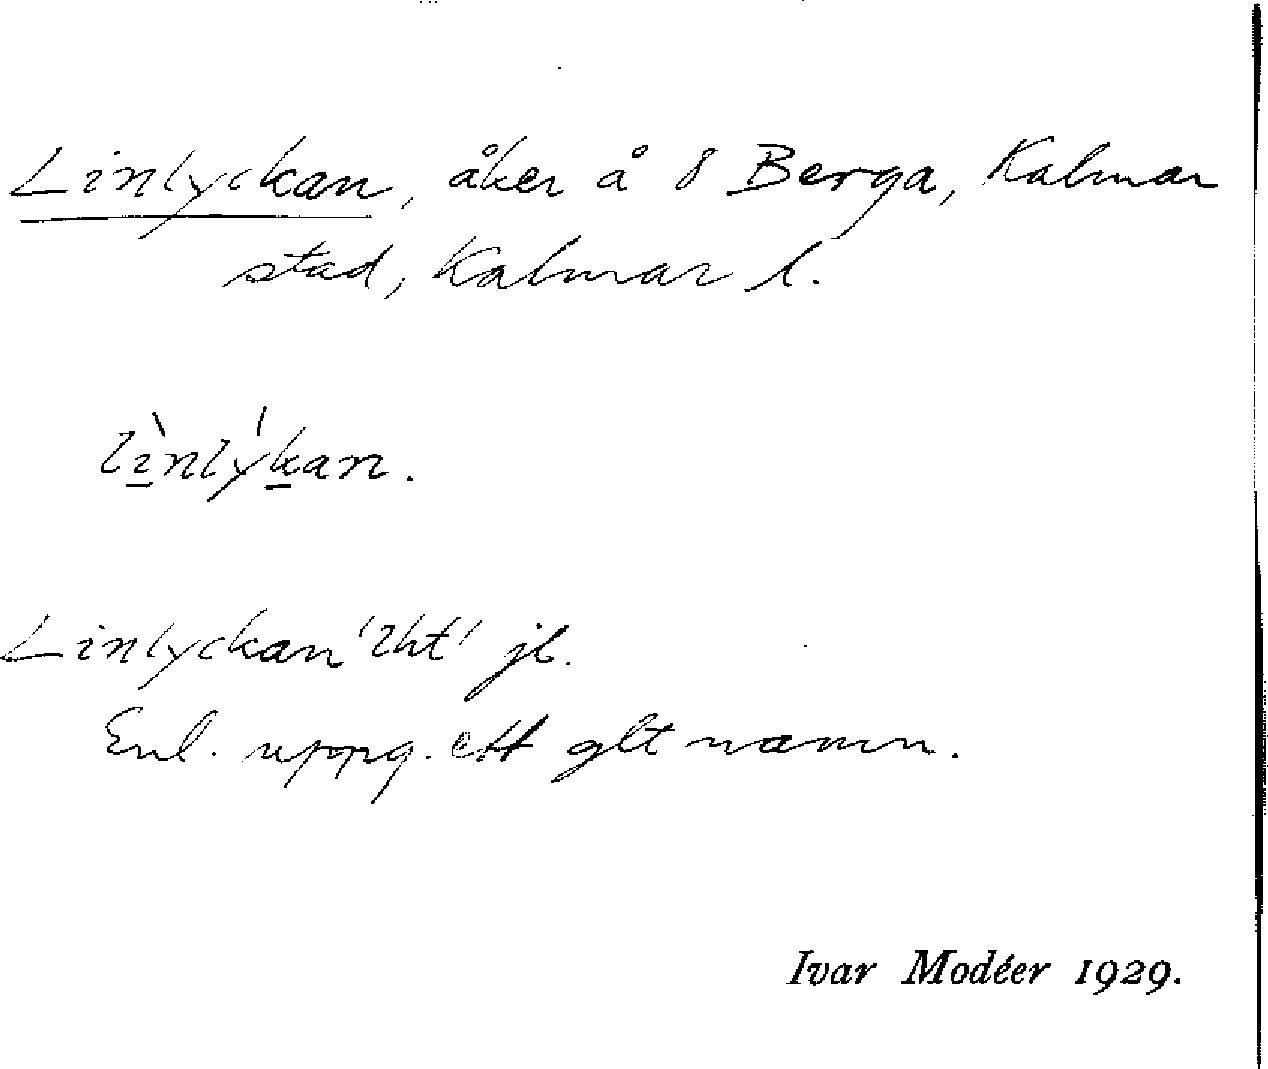 Linlyckan, åker å 8 Berga, Kalmar
stad, Kalmar l.
lìnlýkan.
Linlyckan 'lht' jb.
Enl. uppg. ett glt namn.
Ivar Modéer 1929.